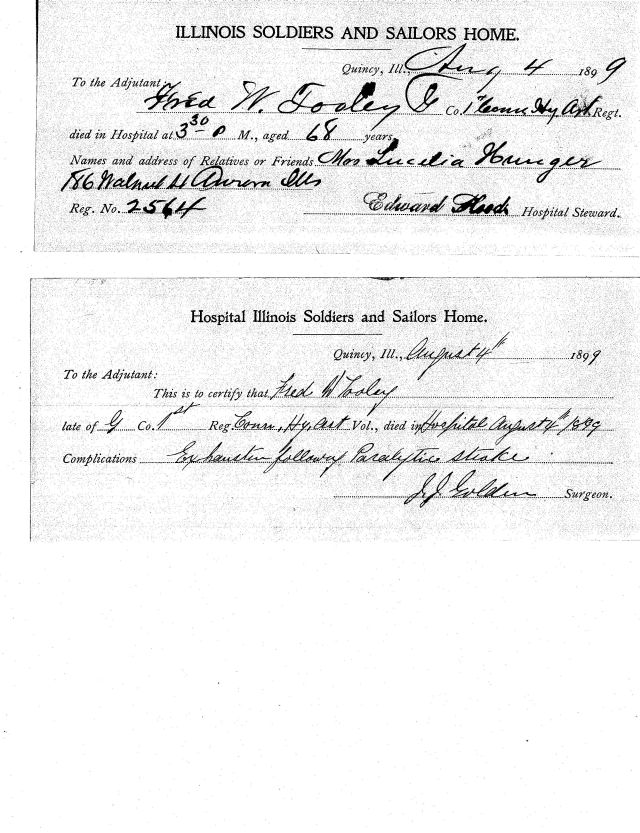 ILLINOIS SOLDIERS AND SAILORS HOME.
Quincy, Ill., Aug 4 1899
To the Adjutant:
Fred W. Tooley G Co. 1 Conn Hy Art. Regt.
died in Hospital at 3 30 P M., aged 68 years,
Names and address of Relatives or Friends Mrs Lucelia Hunger
186 Walnut St Aurora Ills
Reg. No. 2564 Edward Flood Hospital Steward.
Hospital Illinois Soldiers and Sailors Home.
Quincy, Ill., August 4th 1899
To the Adjutant:
This is to certify that Fred W Tooley
late of G Co. 1st Reg. Conn, Hy. Art Vol., died in Hospital August 4th 1899
Complications Exhaustion following Paralytic stroke
J. J. Golden Surgeon.